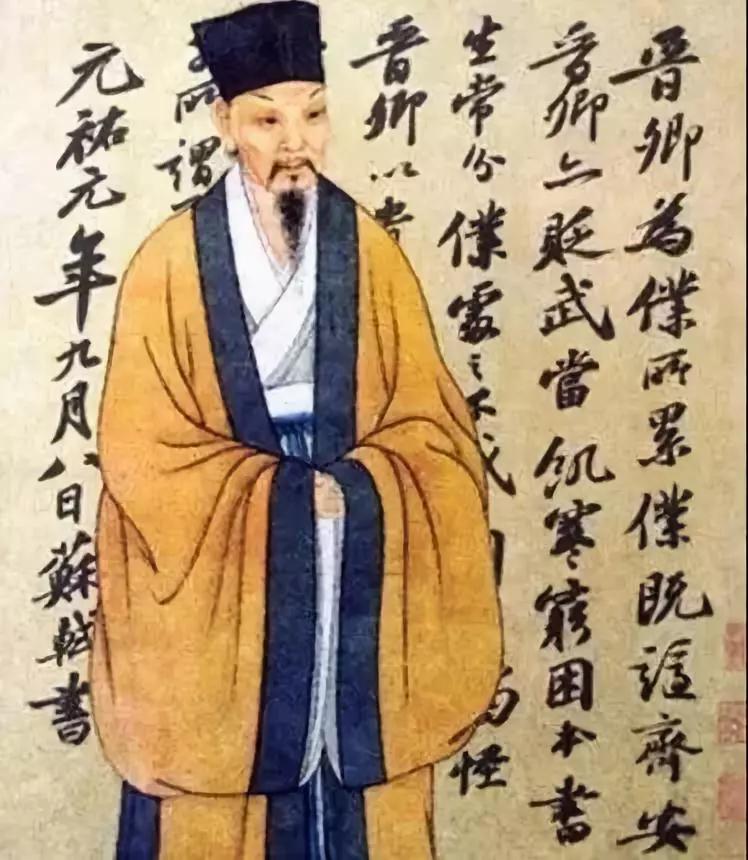 晉卿為僕所累僕既謫齊安
晉卿亦貶武當飢寒窮困本書
生常分僕處之不 怪
晉卿以貴
所謂
元祐元年九月八日蘇軾書